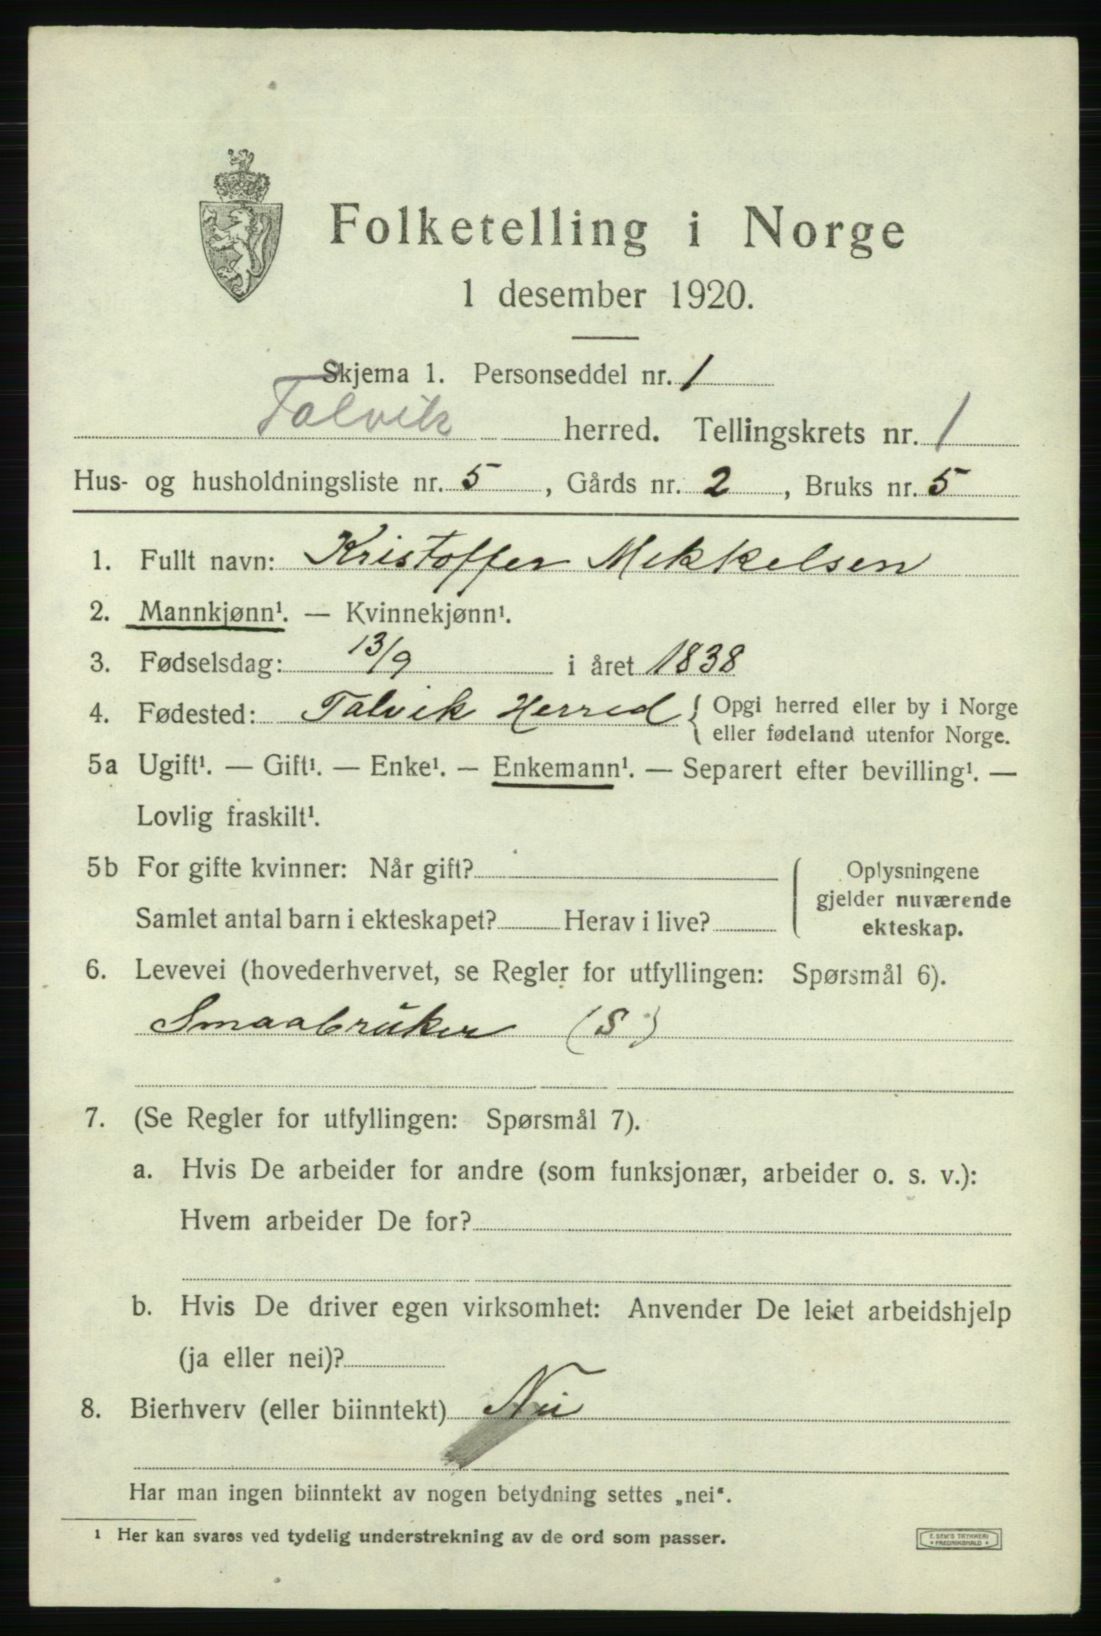 Folketelling i Norge
1 desember 1920.
Skjema 1. Personseddel nr. 1
Talvik herred. Tellingskrets nr. 1
Hus- og husholdningsliste nr. 5, Gårds nr. 2, Bruks nr. 5
1. Fullt navn: Kristoffer Mikkelsen
2. Mannkjønn¹. — Kvinnekjønn¹.
3. Fødselsdag: 13/9 i året 1838
4. Fødested: Talvik Herred { Opgi herred eller by i Norge
eller fødeland utenfor Norge.
5a Ugift¹. — Gift¹. — Enke¹. — Enkemann¹. — Separert efter bevilling¹. —
Lovlig fraskilt¹.
5b For gifte kvinner: Når gift?
Samlet antal barn i ekteskapet? Herav i live?
Oplysningene
gjelder nuværende
ekteskap.
6. Levevei (hovederhvervet, se Regler for utfyllingen: Spørsmål 6).
Smaabruker (S)
7. (Se Regler for utfyllingen: Spørsmål 7).
a. Hvis De arbeider for andre (som funksjonær, arbeider o. s. v.):
Hvem arbeider De for?
b. Hvis De driver egen virksomhet: Anvender De leiet arbeidshjelp
(ja eller nei)?
8. Bierhverv (eller biinntekt) Nei
Har man ingen biinntekt av nogen betydning settes „nei“.
¹ Her kan svares ved tydelig understrekning av de ord som passer.
E. SEM'S TRYKKERI
FREDRIKSHALD